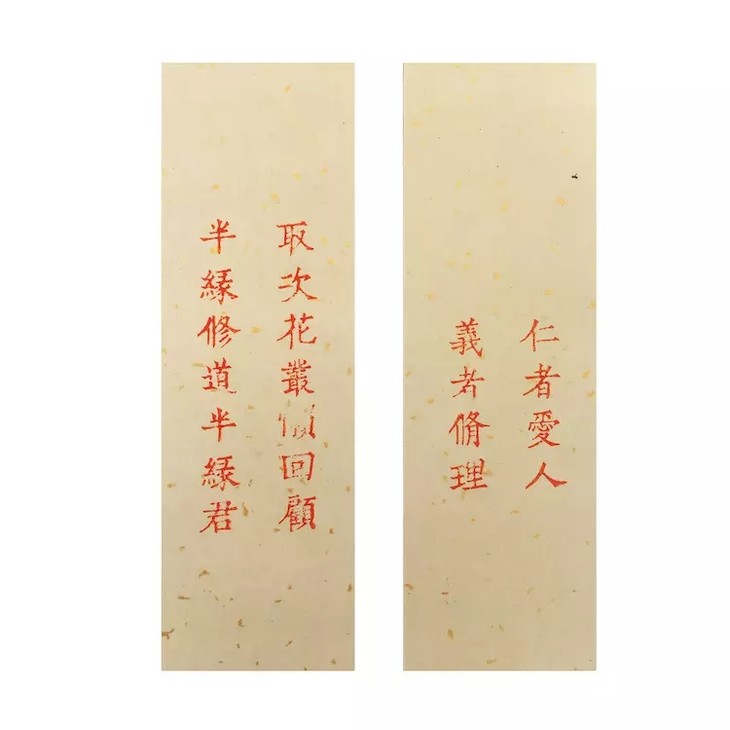 仁者愛人
義者脩理
取次花叢懶回顧
半緣修道半緣君